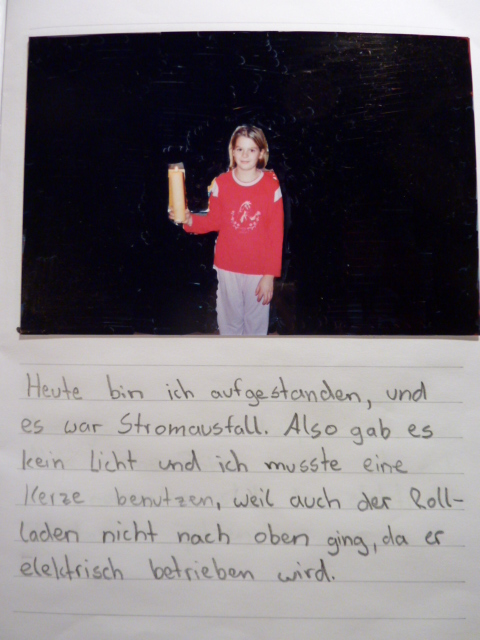 Heute bin ich aufgestanden, und
es war Stromausfall. Also gab es
kein Licht und ich musste eine
Kerze benutzen, weil auch der Roll-
laden nicht nach oben ging, da er
elektrisch betrieben wird.